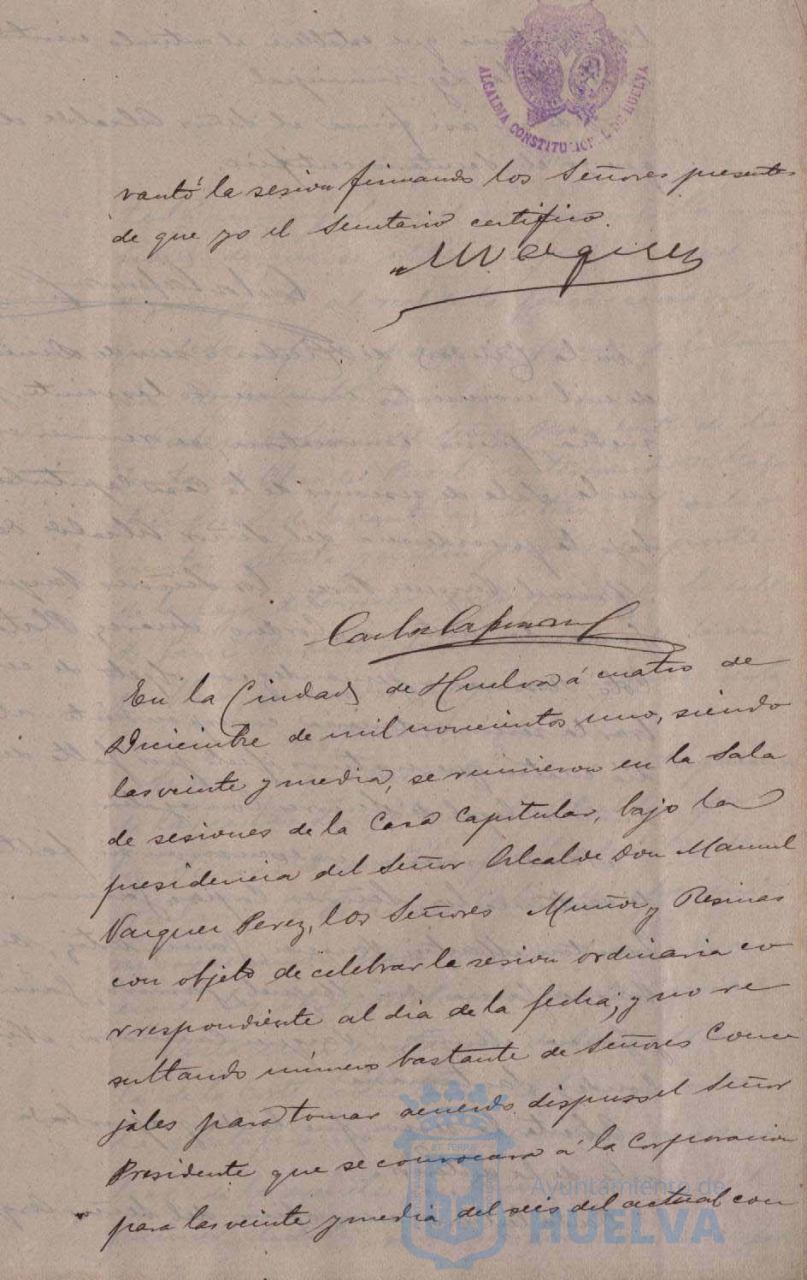 ALCALDIA CONSTITUCIONAL DE HUELVA
vantó la sesion firmando los Señores presentes
de que yo el Secretario certifico.
M Vazquez
Carlos
En la Ciudad de Huelva á cuatro de
Diciembre de mil novecientos uno, siendo
las veinte y media, se reunieron en la Sala
de sesiones de la Casa Capitular, bajo la
presidencia del Señor Alcalde Don Manuel
Vazquez Perez, los Señores Muñoz y Resinas
con objeto de celebrar la sesion ordinaria co
rrespondiente al dia de la fecha; y no re
sultando número bastante de Señores Conce
jales para tomar acuerdo dispuso el Señor
Presidente que se convocara á la Corporacion
para las veinte y media del seis del actual con
Ayuntamiento de
HUELVA